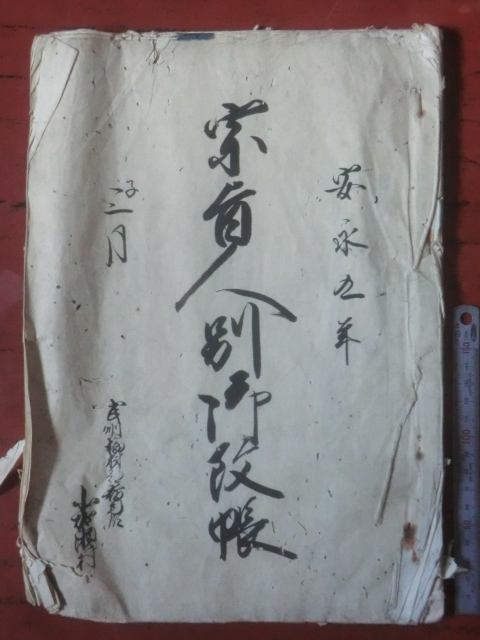 安永五年
宗旨人別御改帳
子二月
武州
村